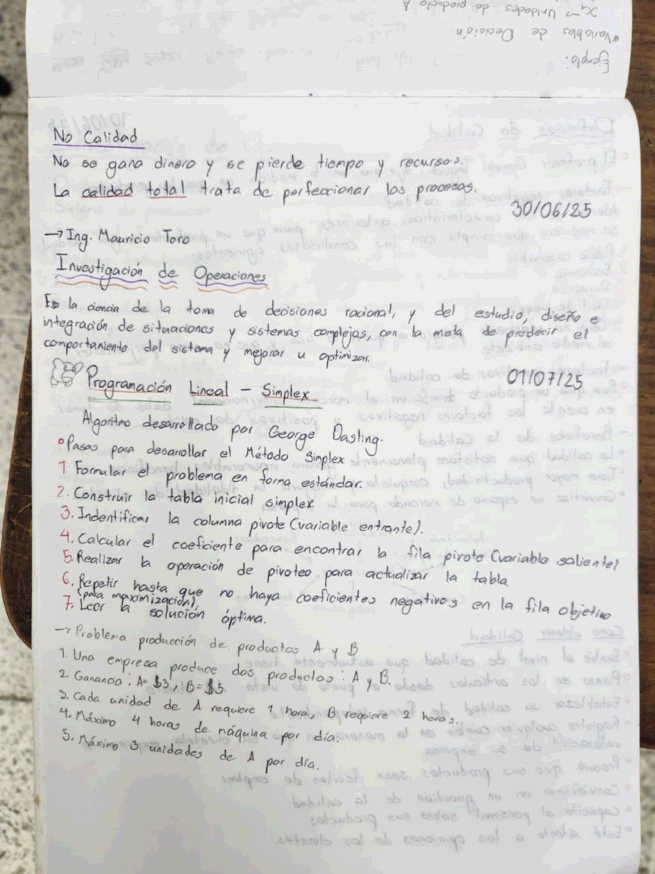 Ejemplo:
*Variables de Decisión
X₁→ Unidades de producto A
No Calidad
No se gana dinero y se pierde tiempo y recursos.
La calidad total trata de perfeccionar los procesos.
30/06/25
→ Ing. Mauricio Toro
Investigación de Operaciones
Es la ciencia de la toma de decisiones racional, y del estudio, diseño e
integración de situaciones y sistemas complejos, con la meta de predecir el
comportamiento del sistema y mejorar u optimizar.
01/07/25
Programación Lineal - Simplex
Algoritmo desarrollado por George Dasling.
°Pasos para desarrollar el Método Simplex
1. Formular el problema en forma estándar.
2. Construir la tabla inicial simplex
3. Indentificar la columna pivote (variable entrante).
4. Calcular el coeficiente para encontrar la fila pivote (variable saliente)
5. Realizar la operación de pivoteo para actualizar la tabla
6. Repetir hasta que no haya coeficientes negativos en la fila objetivo
(para maximización)
7. Leer la solución óptima.
→ Problema producción de productos A y B
1. Una empresa produce dos productos: A y B.
2. Ganancia: A= $3, B= $5
3. Cada unidad de A requiere 1 hora, B requiere 2 horas.
4. Máximo 4 horas de máquina por día.
5. Máximo 3 unidades de A por día.